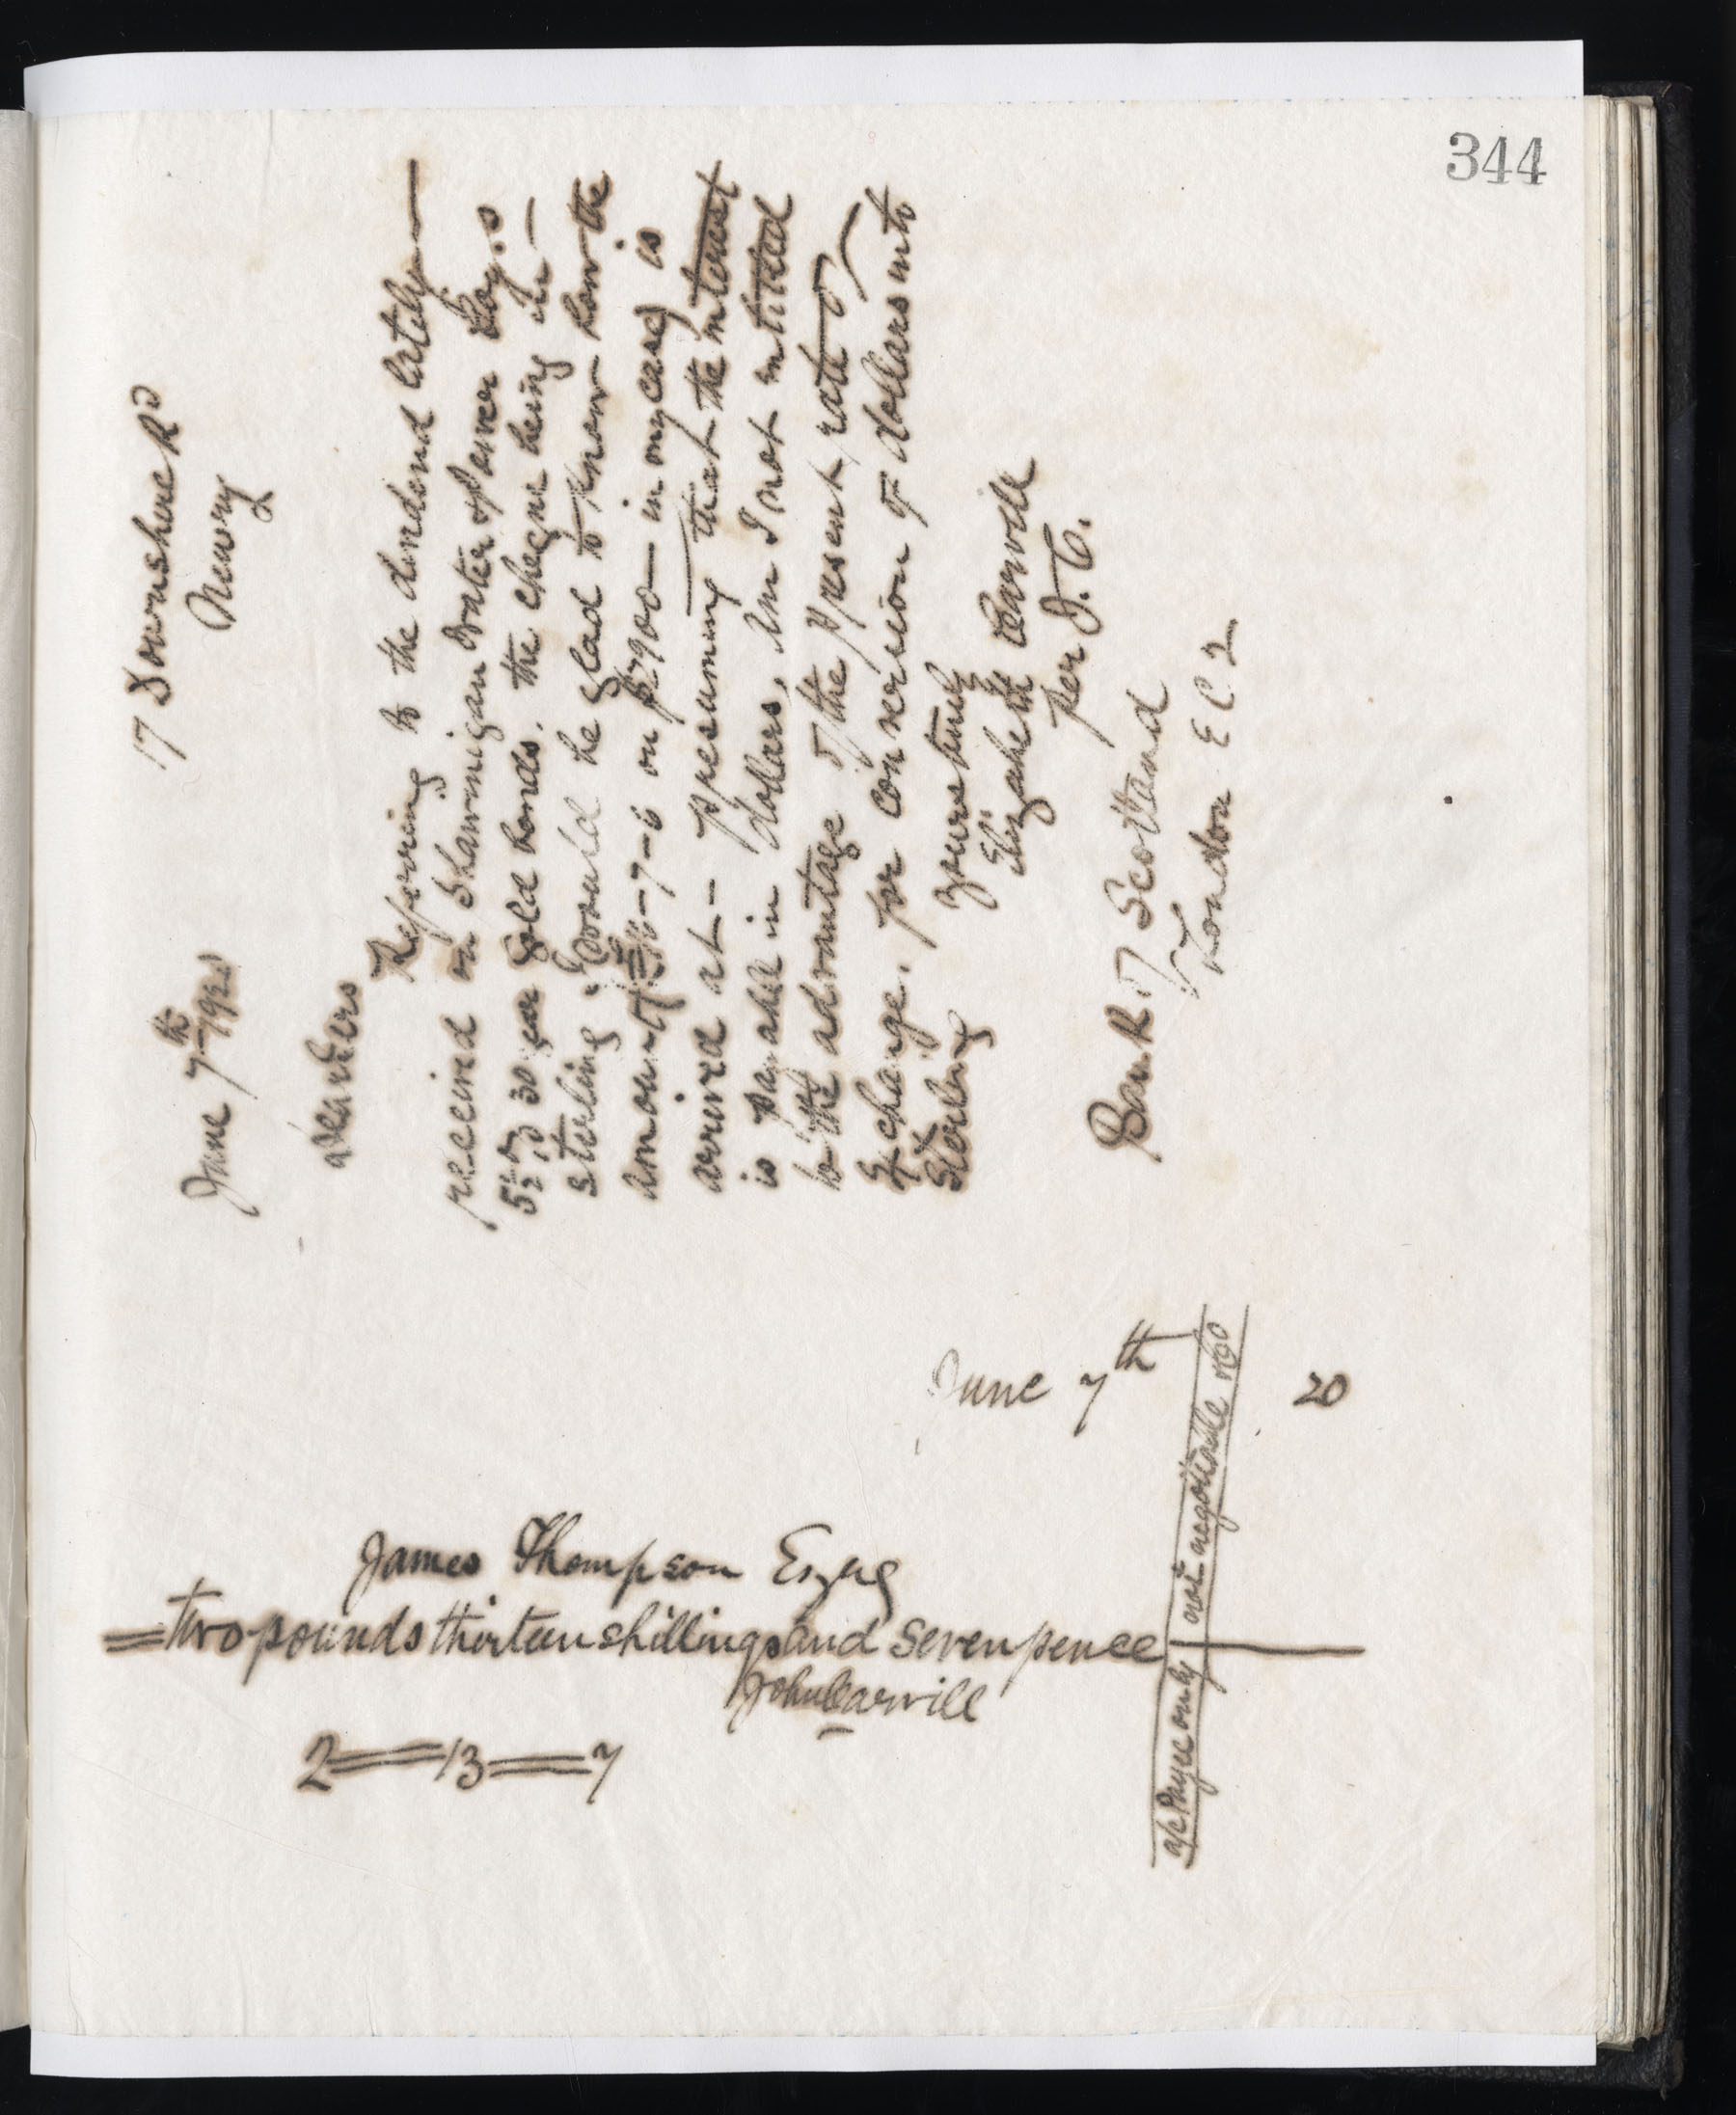 344
17 Downshire Rd
Newry
June 7th 1920
Dear Sirs
Referring to the dividend lately
received on Shawinigan Water & Power Coy.s
5½% 30 year Gold bonds. the cheque being in
sterling, I would be glad to know how the
amount £ 16-7-6 on $2900 in my case) is
arrived at - Presuming that the interest
is payable in dollars, am I not entitled
to the advantage of the present rate of
Exchange. for conversion of dollars into
Sterling
yours truly
Elizabeth Carvill
per J. C.
Bank of Scotland
London E C 2
June 7th 20
James Thompson Esq
two pounds thirteen shillings and seven pence
John Carvill
2 = 13 = 7
a/c Payee only not negotiable & Co